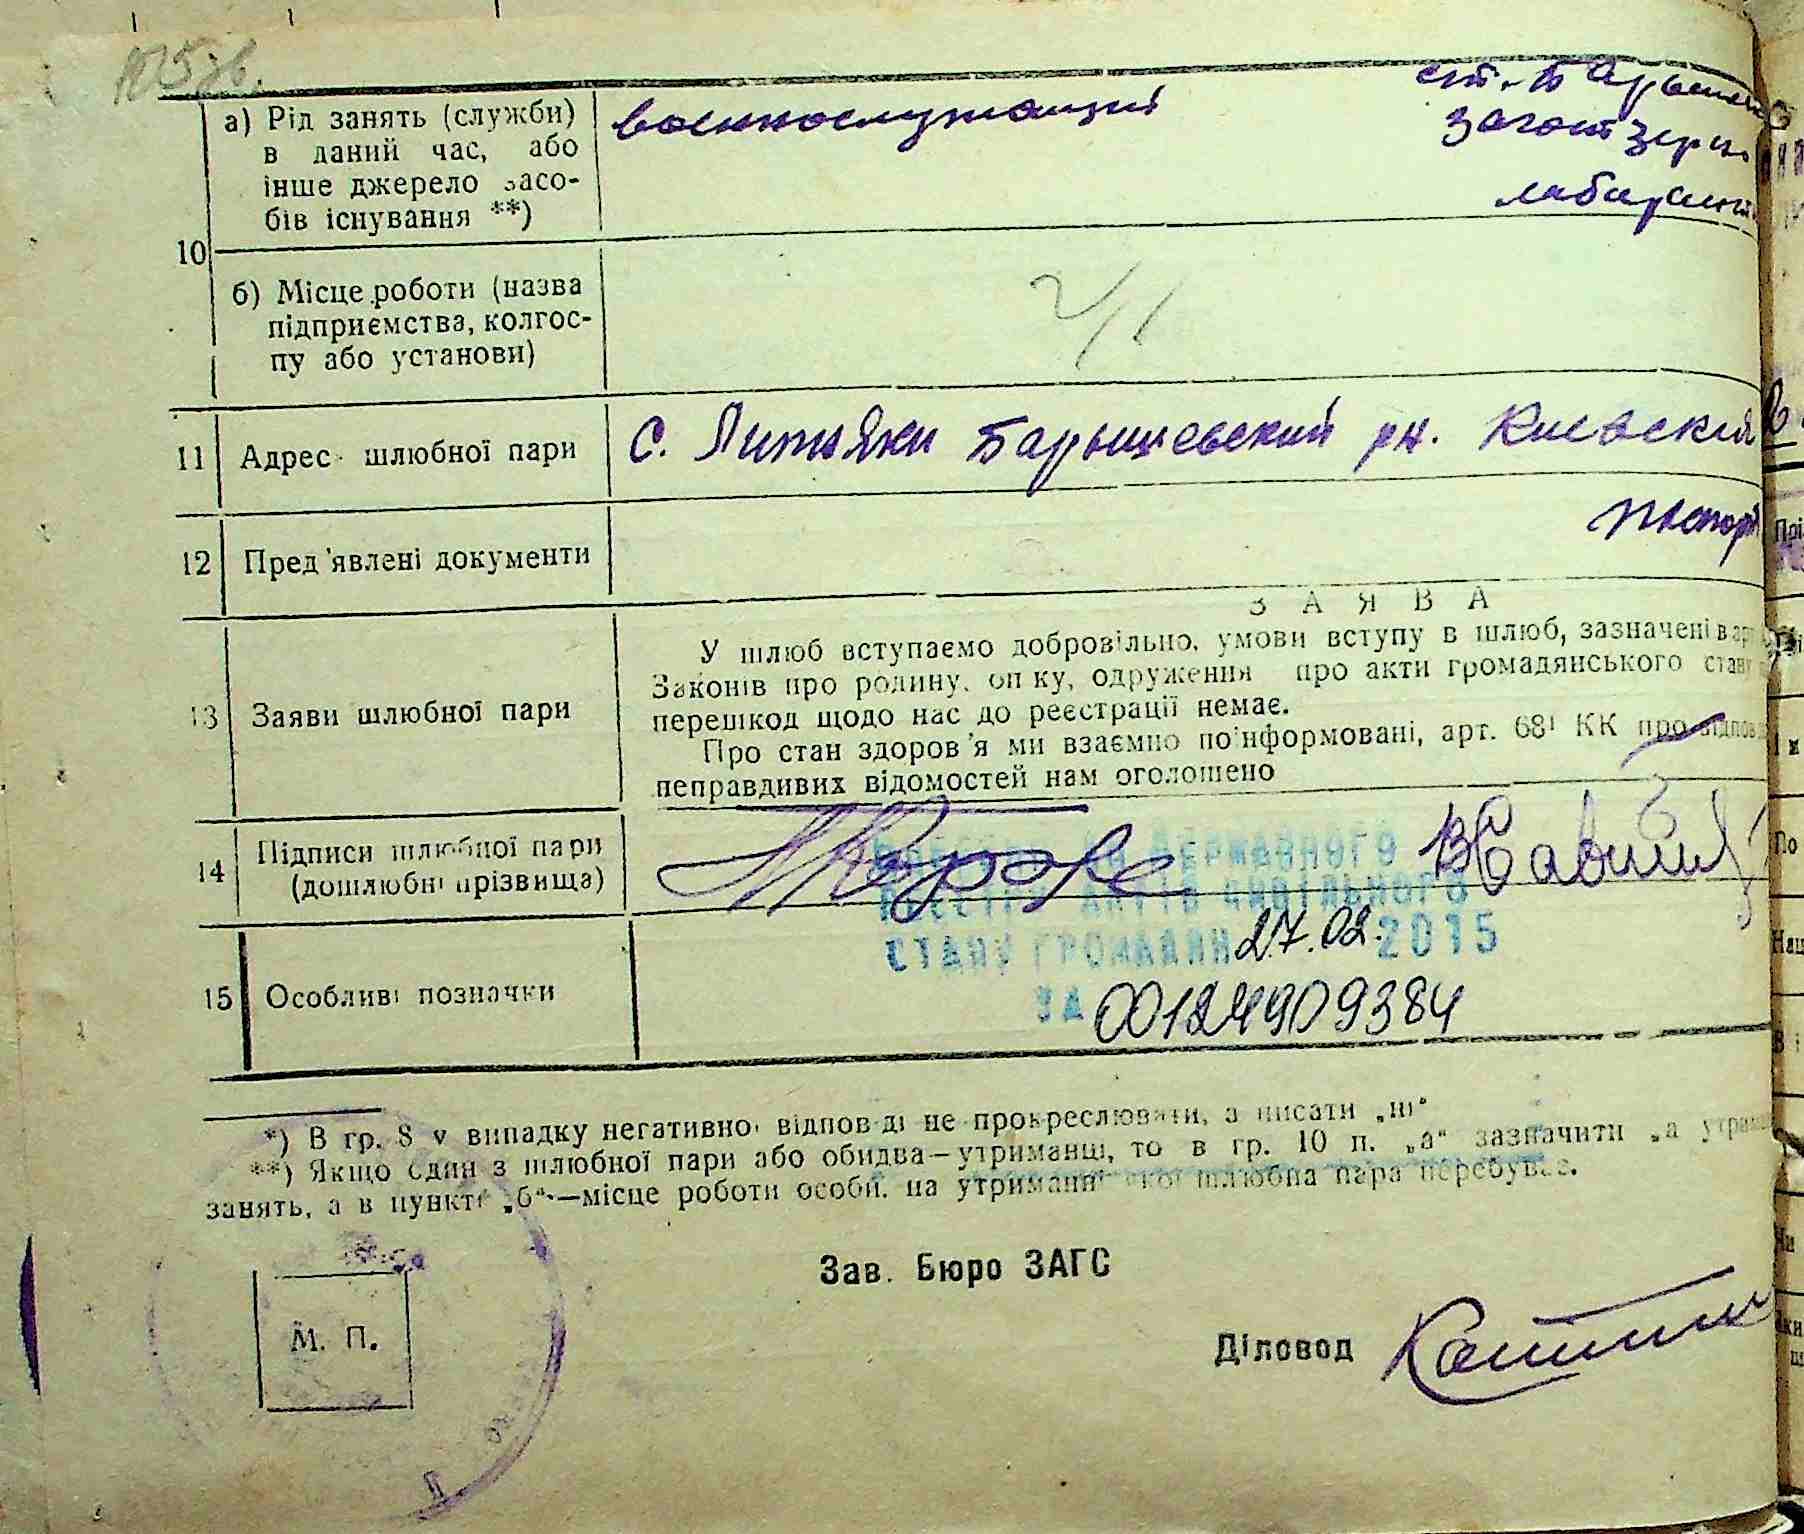 105зв.
10
а) Рід занять (служби)
в даний час, або
інше джерело засо-
бів існування **)
военнослужащий
ст. Барышев
Заготзерно
лаборант
б) Місце роботи (назва
підприємства, колгос-
пу або установи)
11 Адрес шлюбної пари
с. Литняки Барышевский рн. Киевския
12 Пред'явлені документи
паспорт
13 Заяви шлюбної пари
ЗАЯВА
У шлюб вступаємо добровільно, умови вступу в шлюб, зазначені в арт
Законів про родину, опіку, одруження про акти громадянського стану
перешкод щодо нас до реєстрації немає.
Про стан здоров'я ми взаємно поінформовані, арт. 68¹ КК про відпов
неправдивих відомостей нам оголошено
14 Підписи шлюбної пари
(дошлюбні прізвища)
ДЕРЖАВНОГО
РЕЄСТРУ АКТІВ ЦИВІЛЬНОГО
СТАНУ ГРОМАДЯН 27.02.2015
ЗА 00124909384
15 Особливі позначки
*) В гр. 8 у випадку негативної відповіді не прокреслювати, а писати „ні“
**) Якщо один з шлюбної пари або обидва—утриманці, то в гр. 10 п. „а“ зазначити „а утрим
занять, а в пункті „б“—місце роботи особи, на утриманні якої шлюбна пара перебуває.
Зав. Бюро ЗАГС
М. П.
Діловод